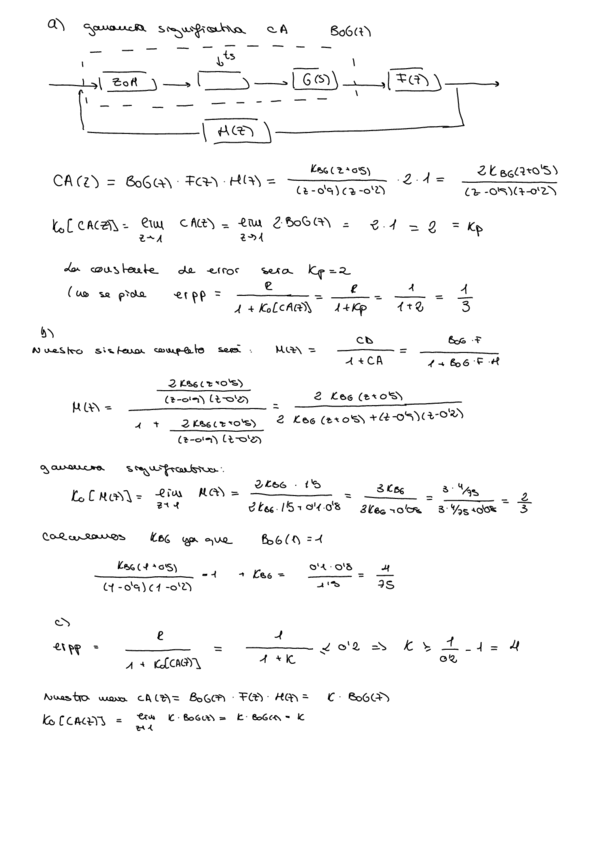 a) ganancia significativa CA BoG(z)
ts
ZOH G(s) F(z)
H(z)
CA(z) = BoG(z) · F(z) · H(z) = KBG(z+0'5) / (z-0'9)(z-0'2) · 2 · 1 = 2KBG(z+0'5) / (z-0'9)(z-0'2)
Ko[CA(z)] = lim z→1 CA(z) = lim z→1 2 BoG(z) = 2·1 = 2 = Kp
La constante de error sera Kp=2
(no se pide erpp = R / 1+Ko[CA(z)] = R / 1+Kp = 1 / 1+2 = 1/3
b)
Nuestro sistema completo será: M(z) = CD / 1+CA = BoG·F / 1+BoG·F·H
M(z) = 2KBG(z+0'5)/(z-0'9)(z-0'2) / 1 + 2KBG(z+0'5)/(z-0'9)(z-0'2) = 2 KBG(z+0'5) / 2 KBG(z+0'5)+(z-0'9)(z-0'2)
ganancia significativa:
Ko[M(z)] = lim z→1 M(z) = 2KBG·1'5 / 2KBG·1'5+0'1·0'8 = 3KBG / 3KBG+0'08 = 3·4/75 / 3·4/75+0'08 = 2/3
calculamos KBG ya que BoG(1)=1
KBG(1+0'5) / (1-0'9)(1-0'2) = 1 → KBG = 0'1·0'8 / 1'5 = 4/75
c)
erpp = R / 1+Ko[CA(z)] = 1 / 1+K ≤ 0'2 ⇒ K ≥ 1/0'2 - 1 = 4
Nuestra nueva CA(z) = BoG(z) · F(z) · H(z) = K · BoG(z)
Ko[CA(z)] = lim z→1 K·BoG(z) = K·BoG(1) = K